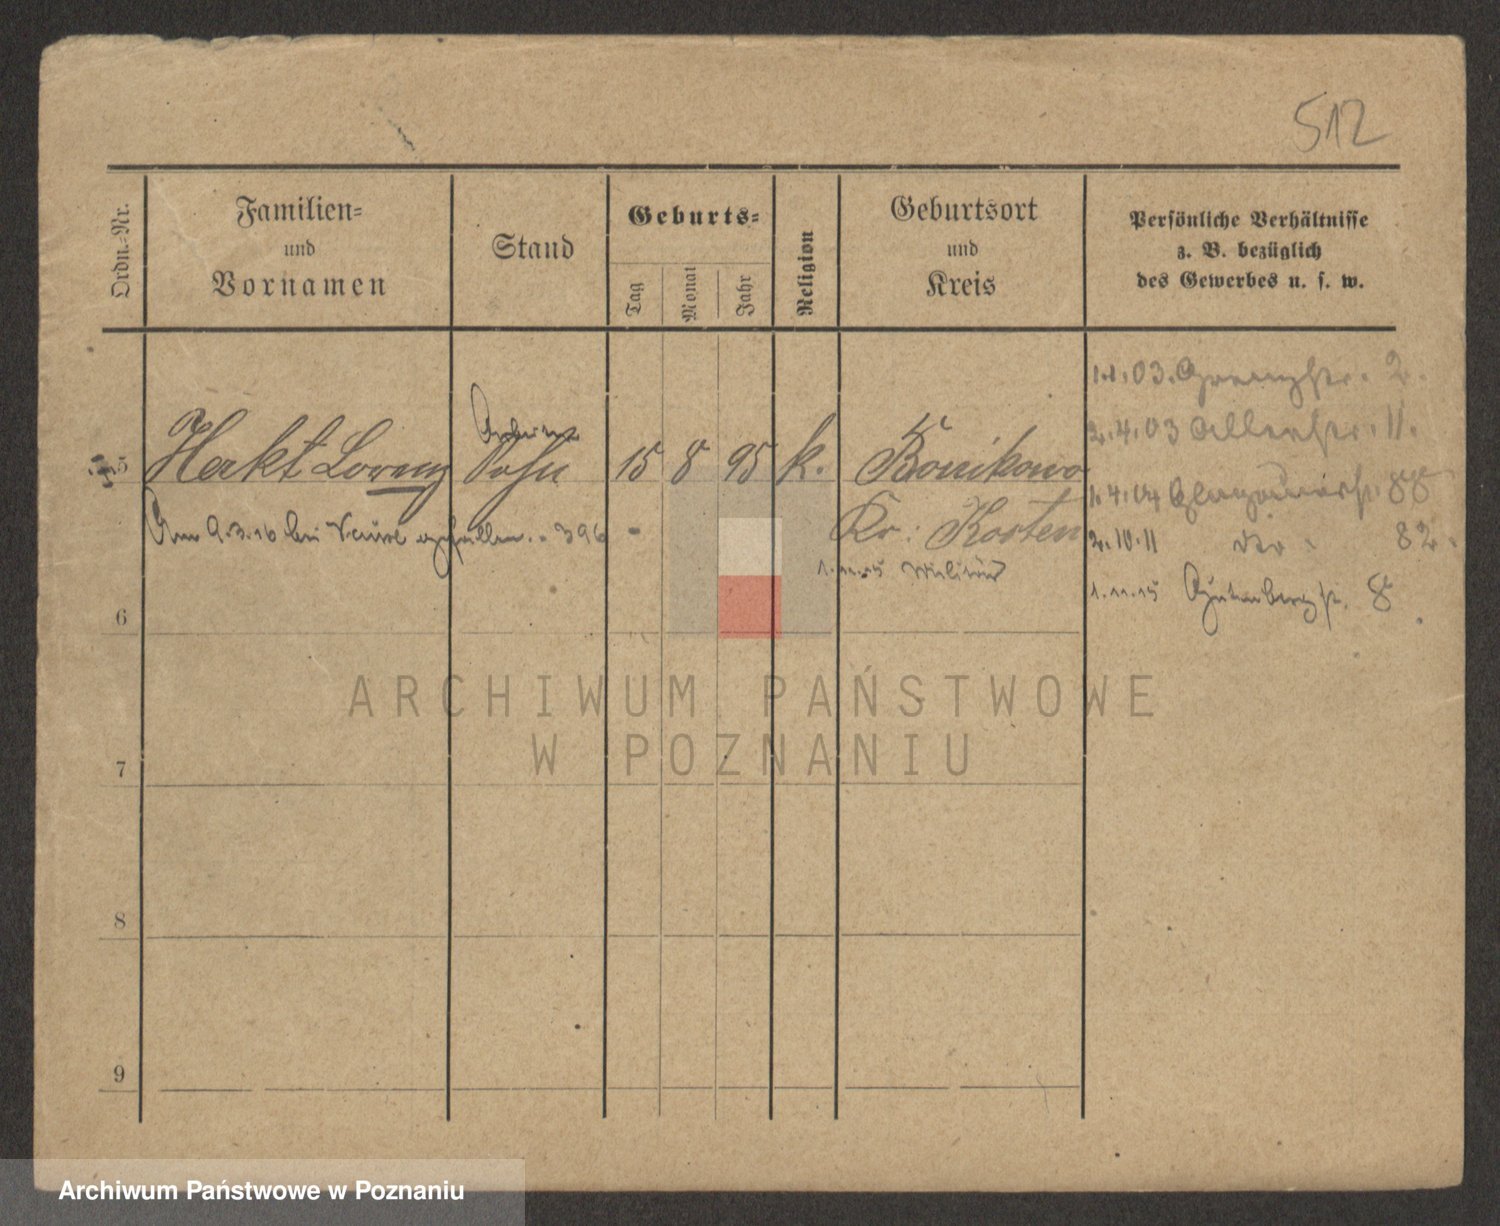 512
Ordn.-Nr.
Familien-
und
Vornamen
Stand
Geburts-
Tag
Monat
Jahr
Religion
Geburtsort
und
Kreis
Persönliche Verhältnisse
z. B. bezüglich
des Gewerbes u. s. w.
5 Herkt Lorenz Sohn 15 8 95 k. Bonikowo
Kr. Kosten
Am 9.3.16 bei gefallen. 396
1.11.15 Militär
03. 2.
2.4.03 11.
1.4.04 88
2.10.11 dto 82.
1.11.15 Gutenbergstr. 8
6
7
8
9
ARCHIWUM PAŃSTWOWE
W POZNANIU
Archiwum Państwowe w Poznaniu